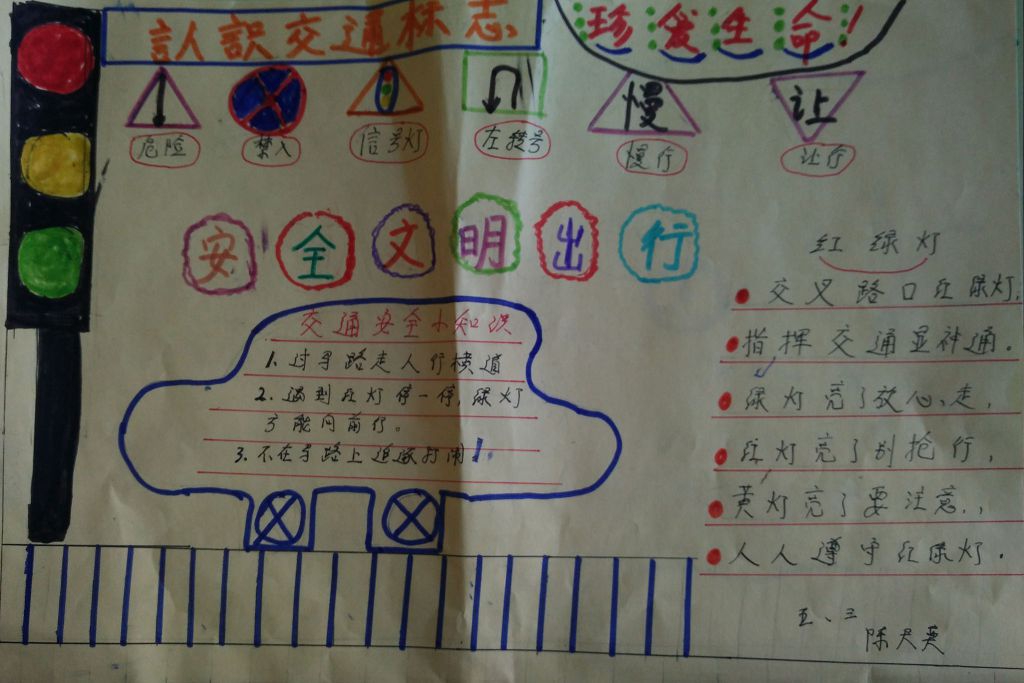 认识交通标志
珍爱生命！
慢
让
危险
禁入
信号灯
左拨号
慢行
让行
安全文明出行
交通安全小知识
1. 过马路走人行横道
2. 遇到红灯停一停, 绿灯
才能向前行。
3. 不在马路上追逐打闹！
红绿灯
交叉路口红绿灯,
指挥交通显神通.
绿灯亮了放心走,
红灯亮了别抢行,
黄灯亮了要注意,
人人遵守红绿灯.
五、三
陈天英